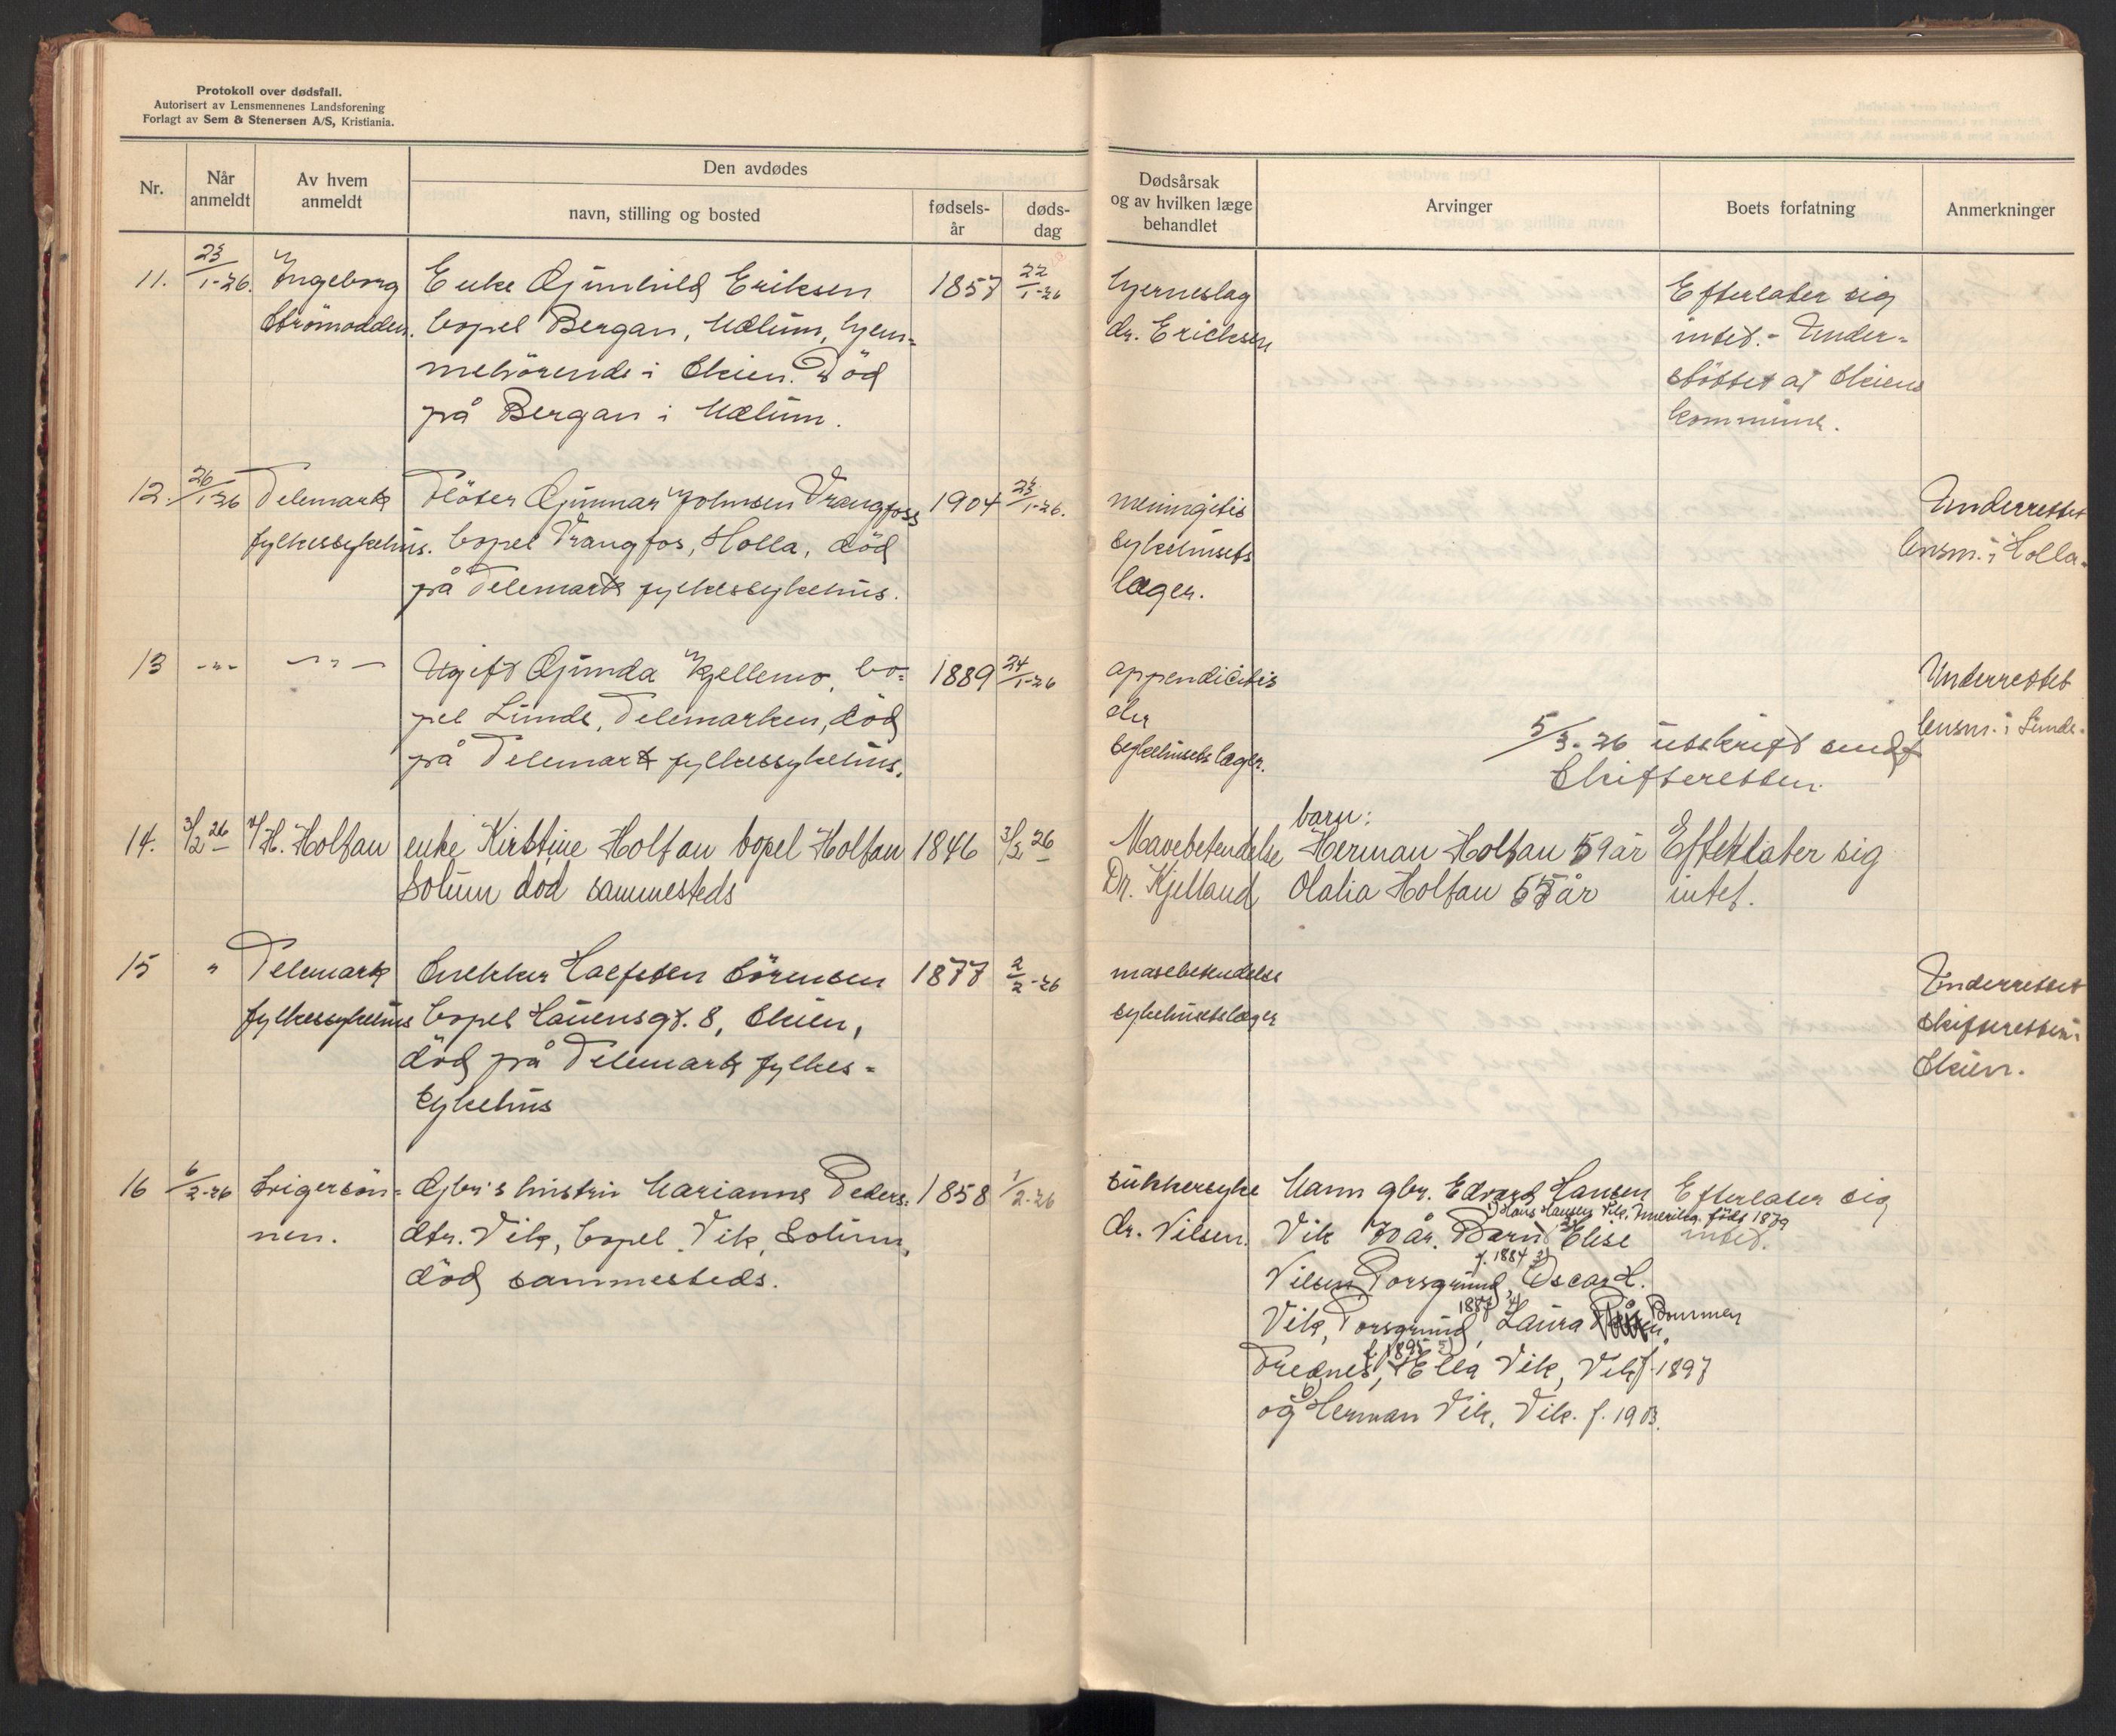 Protokoll over dødsfall.
Autorisert av Lensmennenes Landsforening
Forlagt av Sem & Stenersen A/S, Kristiania.
Nr.
Når anmeldt
Av hvem anmeldt
Den avdødes
navn, stilling og bosted
fødsels-år
døds-dag
Dødsårsak og av hvilken læge behandlet
Arvinger
Boets forfatning
Anmerkninger
11. 23/1-26. Ingeborg Enke Gunhild Eriksen 1857 22/1-26 hjerneslag Efterlater sig
Strömodden. bopel Bergan, Mælum, hjem- dr. Ericksen intet. - Under-
mehörende i Skien. Död støttet af Skiens
på Bergan i Mælum. kommune.
12. 26/1-26 Telemark Flöter Gunnar Johnsen Vrangfoss 1904 23/1-26. meningitis Underrettet
fylkessykehus. bopel Vrangfos, Holla, död sykehusets lensm. i Holla.
på Telemark fylkessykehus. læger.
13 -"- -"- Ugift Gunda Kjellemo, bo- 1889 24/1-26 appendicitis Underrettet
pel Lunde, Telemarken, död lensm. i Lunde.
på Telemark fylkessykehus. sykehusets læger.
5/3-26 utskrift sendt
Skifteretten.
14. 3/2 26 H. Holtan enke Kirstine Holtan bopel Holtan 1846 3/2 26 Mavebetendelse barn: Herman Holtan 59 år Efterlater sig
Solum död sammesteds Dr. Kjelland Olalia Holtan år intet.
15 " Telemark Snekker Sörensen 1877 2/2-26 mavebetendelse Underrettet
fylkessykehus bopel gt. 8, Skien, sykehusetslæger skifteretten i
död på Telemark fylkes- Skien.
sykehus
16 6/2-26 Svigersön- Gbr's hustru Marianne Peders- 1858 1/2-26 sukkersyke Mann gbr. Edvard Hansen Efterlater sig
nen. dtr. Vik, bopel Vik, Solum, dr. Nilsen. Vik 70 år. Barn 1) Hans Hansen Vik, Amerika, födt 1879 2) Elise intet.
död sammesteds. Nilsen, Porsgrund, f. 1884 3) Oscar H.
Vik, Porsgrund, 1887 4) Laura Bommen
Trednes, f. 1895 5) Ella Vik, Vik f. 1897
og 6) Herman Vik, Vik. f. 1903.